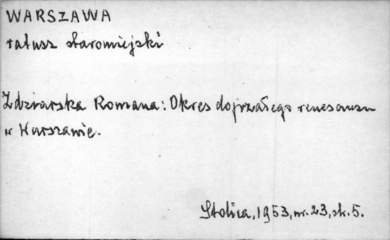 WARSZAWA
ratusz staromiejski
Zdziarska Romana: Okres dojrzałego renesansu
w Warszawie.
Stolica, 1953, nr. 23, st. 5.